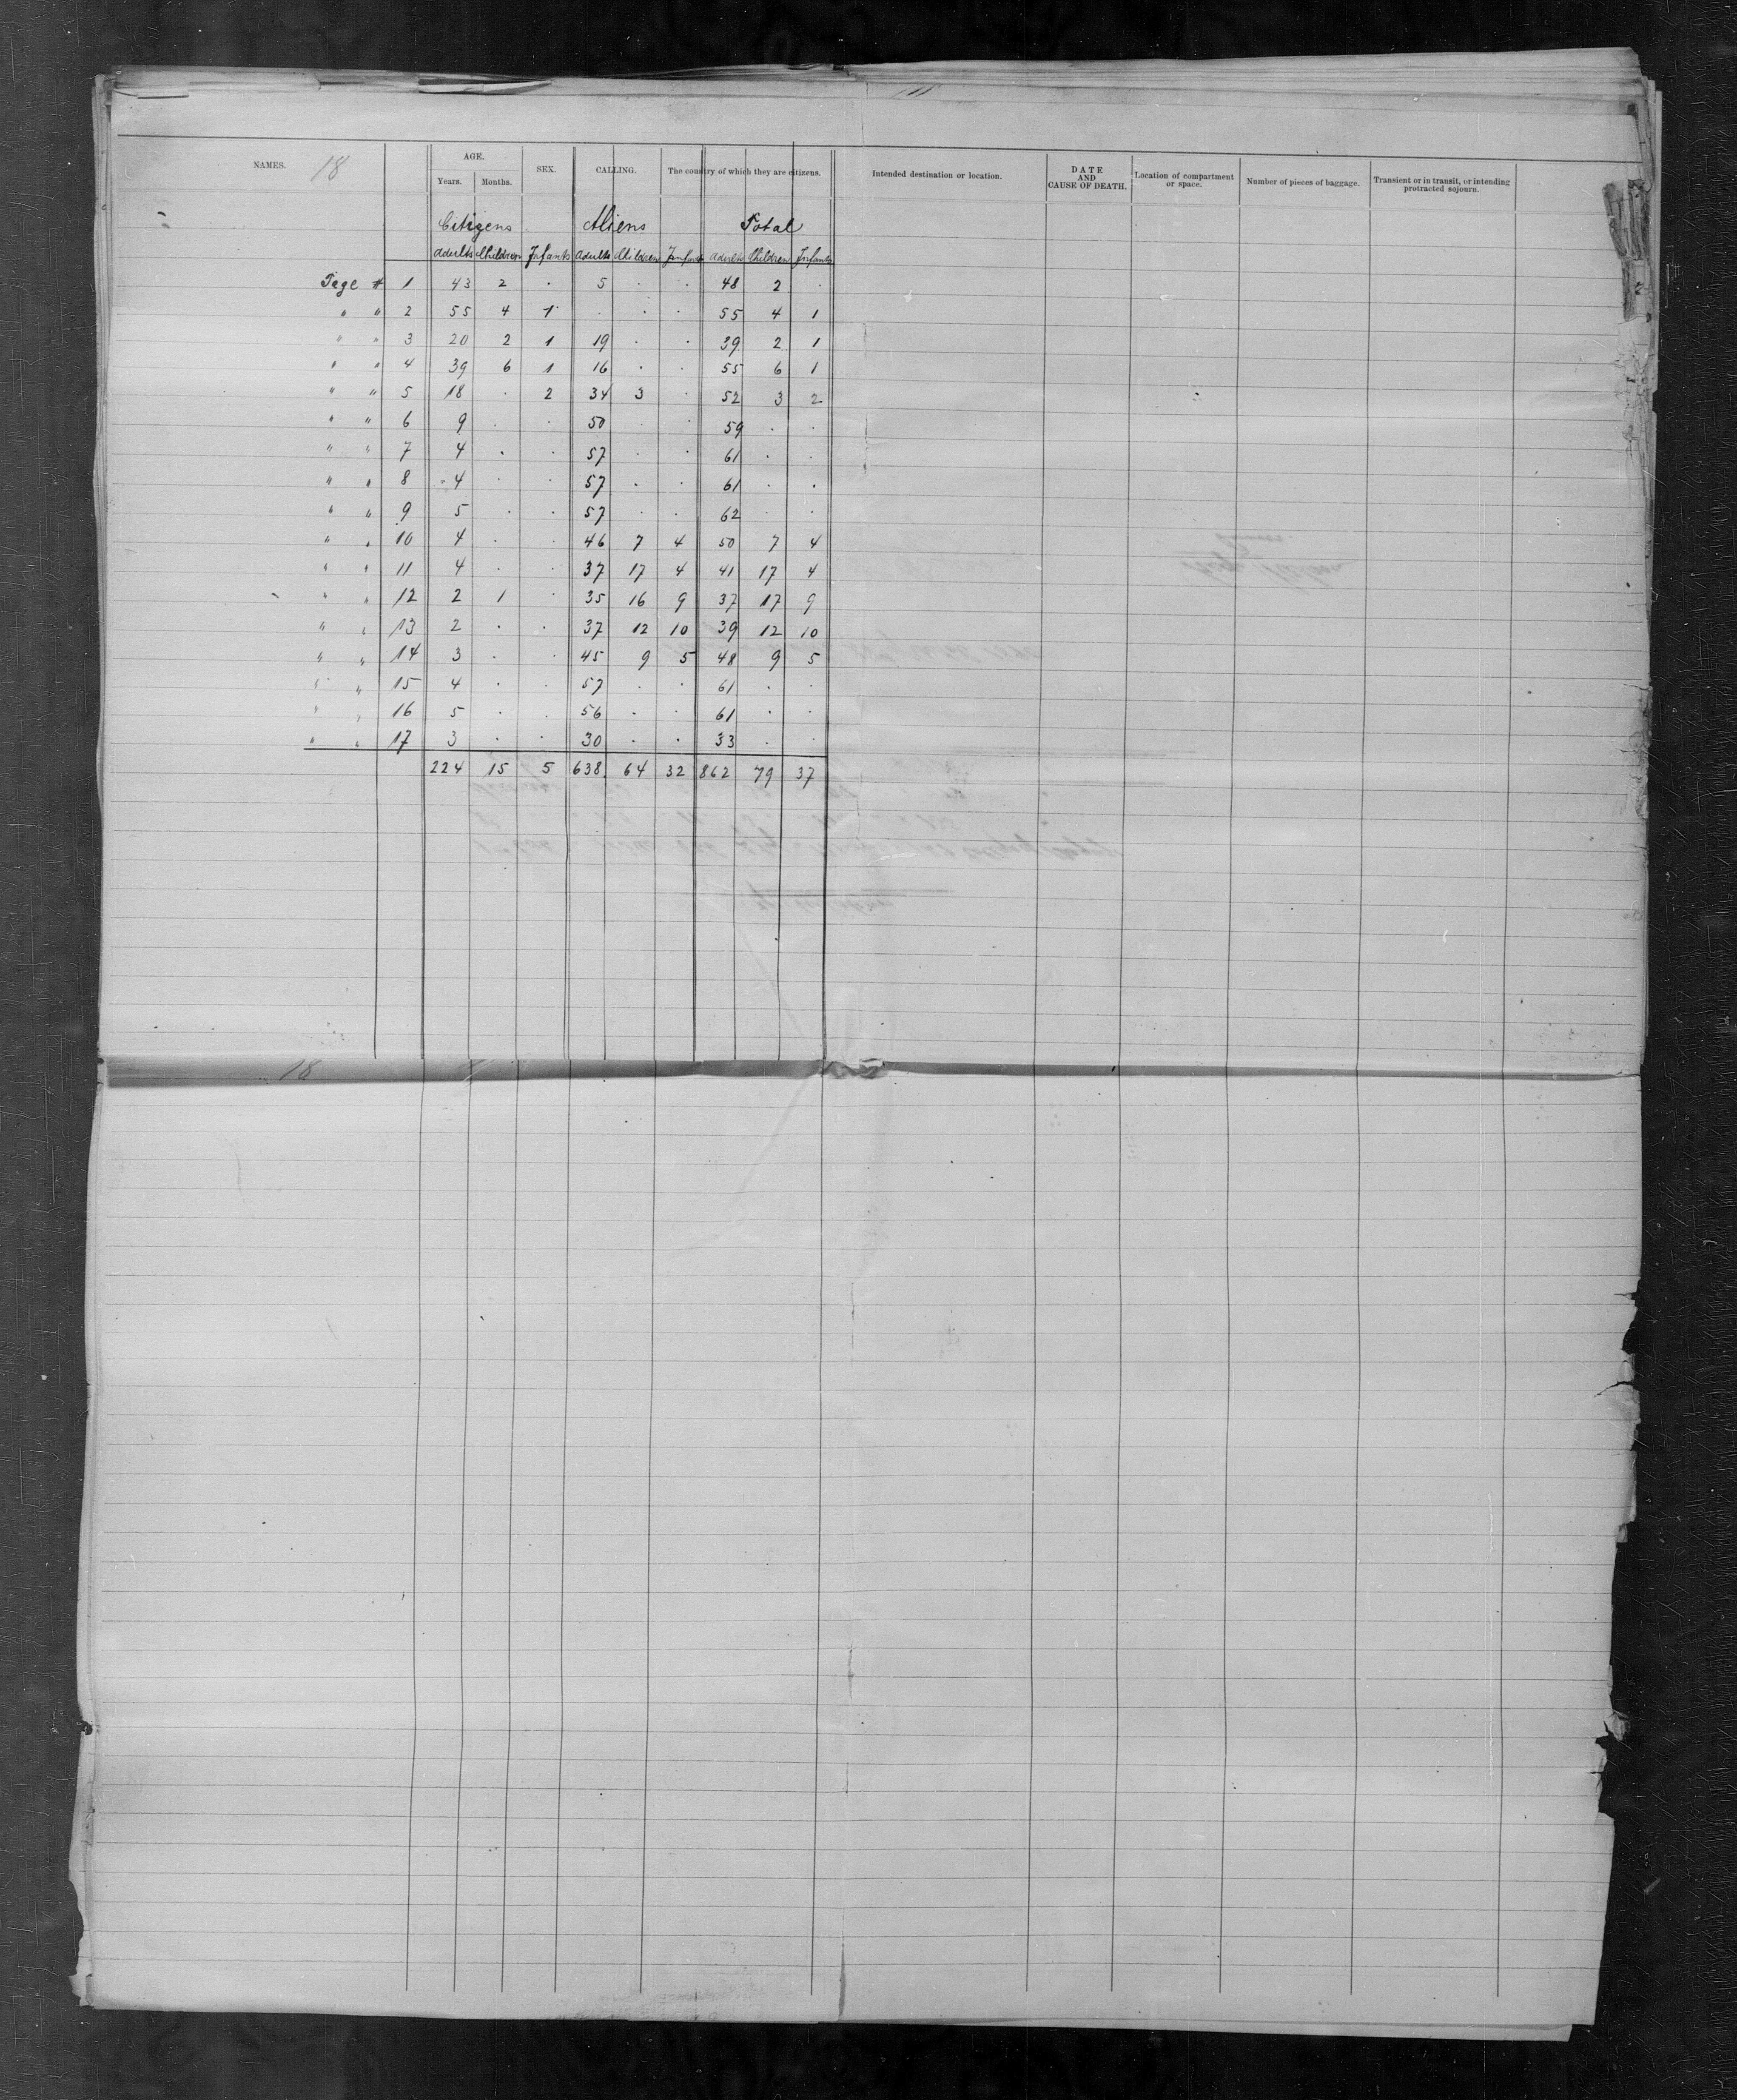 NAMES. 18 AGE. SEX. CALLING. The country of which they are citizens. Intended destination or location. DATE AND CAUSE OF DEATH. Location of compartment or space. Number of pieces of baggage. Transient or in transit, or intending protracted sojourn.
Years. Months.
Citizens Aliens Total
Adults Children Infants Adults Children Infants Adults Children Infants
Page # 1 43 2 . 5 . . 48 2 .
" " 2 55 4 1 . . . 55 4 1
" " 3 20 2 1 19 . . 39 2 1
" " 4 39 6 1 16 . . 55 6 1
" " 5 18 . 2 34 3 . 52 3 2
" " 6 9 . . 50 . . 59 . .
" " 7 4 . . 57 . . 61 . .
" " 8 4 . . 57 . . 61 . .
" " 9 5 . . 57 . . 62 . .
" " 10 4 . . 46 7 4 50 7 4
" " 11 4 . . 37 17 4 41 17 4
" " 12 2 1 . 35 16 9 37 17 9
" " 13 2 . . 37 12 10 39 12 10
" " 14 3 . . 45 9 5 48 9 5
" " 15 4 . . 57 . . 61 . .
" " 16 5 . . 56 . . 61 . .
" " 17 3 . . 30 . . 33 . .
224 15 5 638 64 32 862 79 37
18